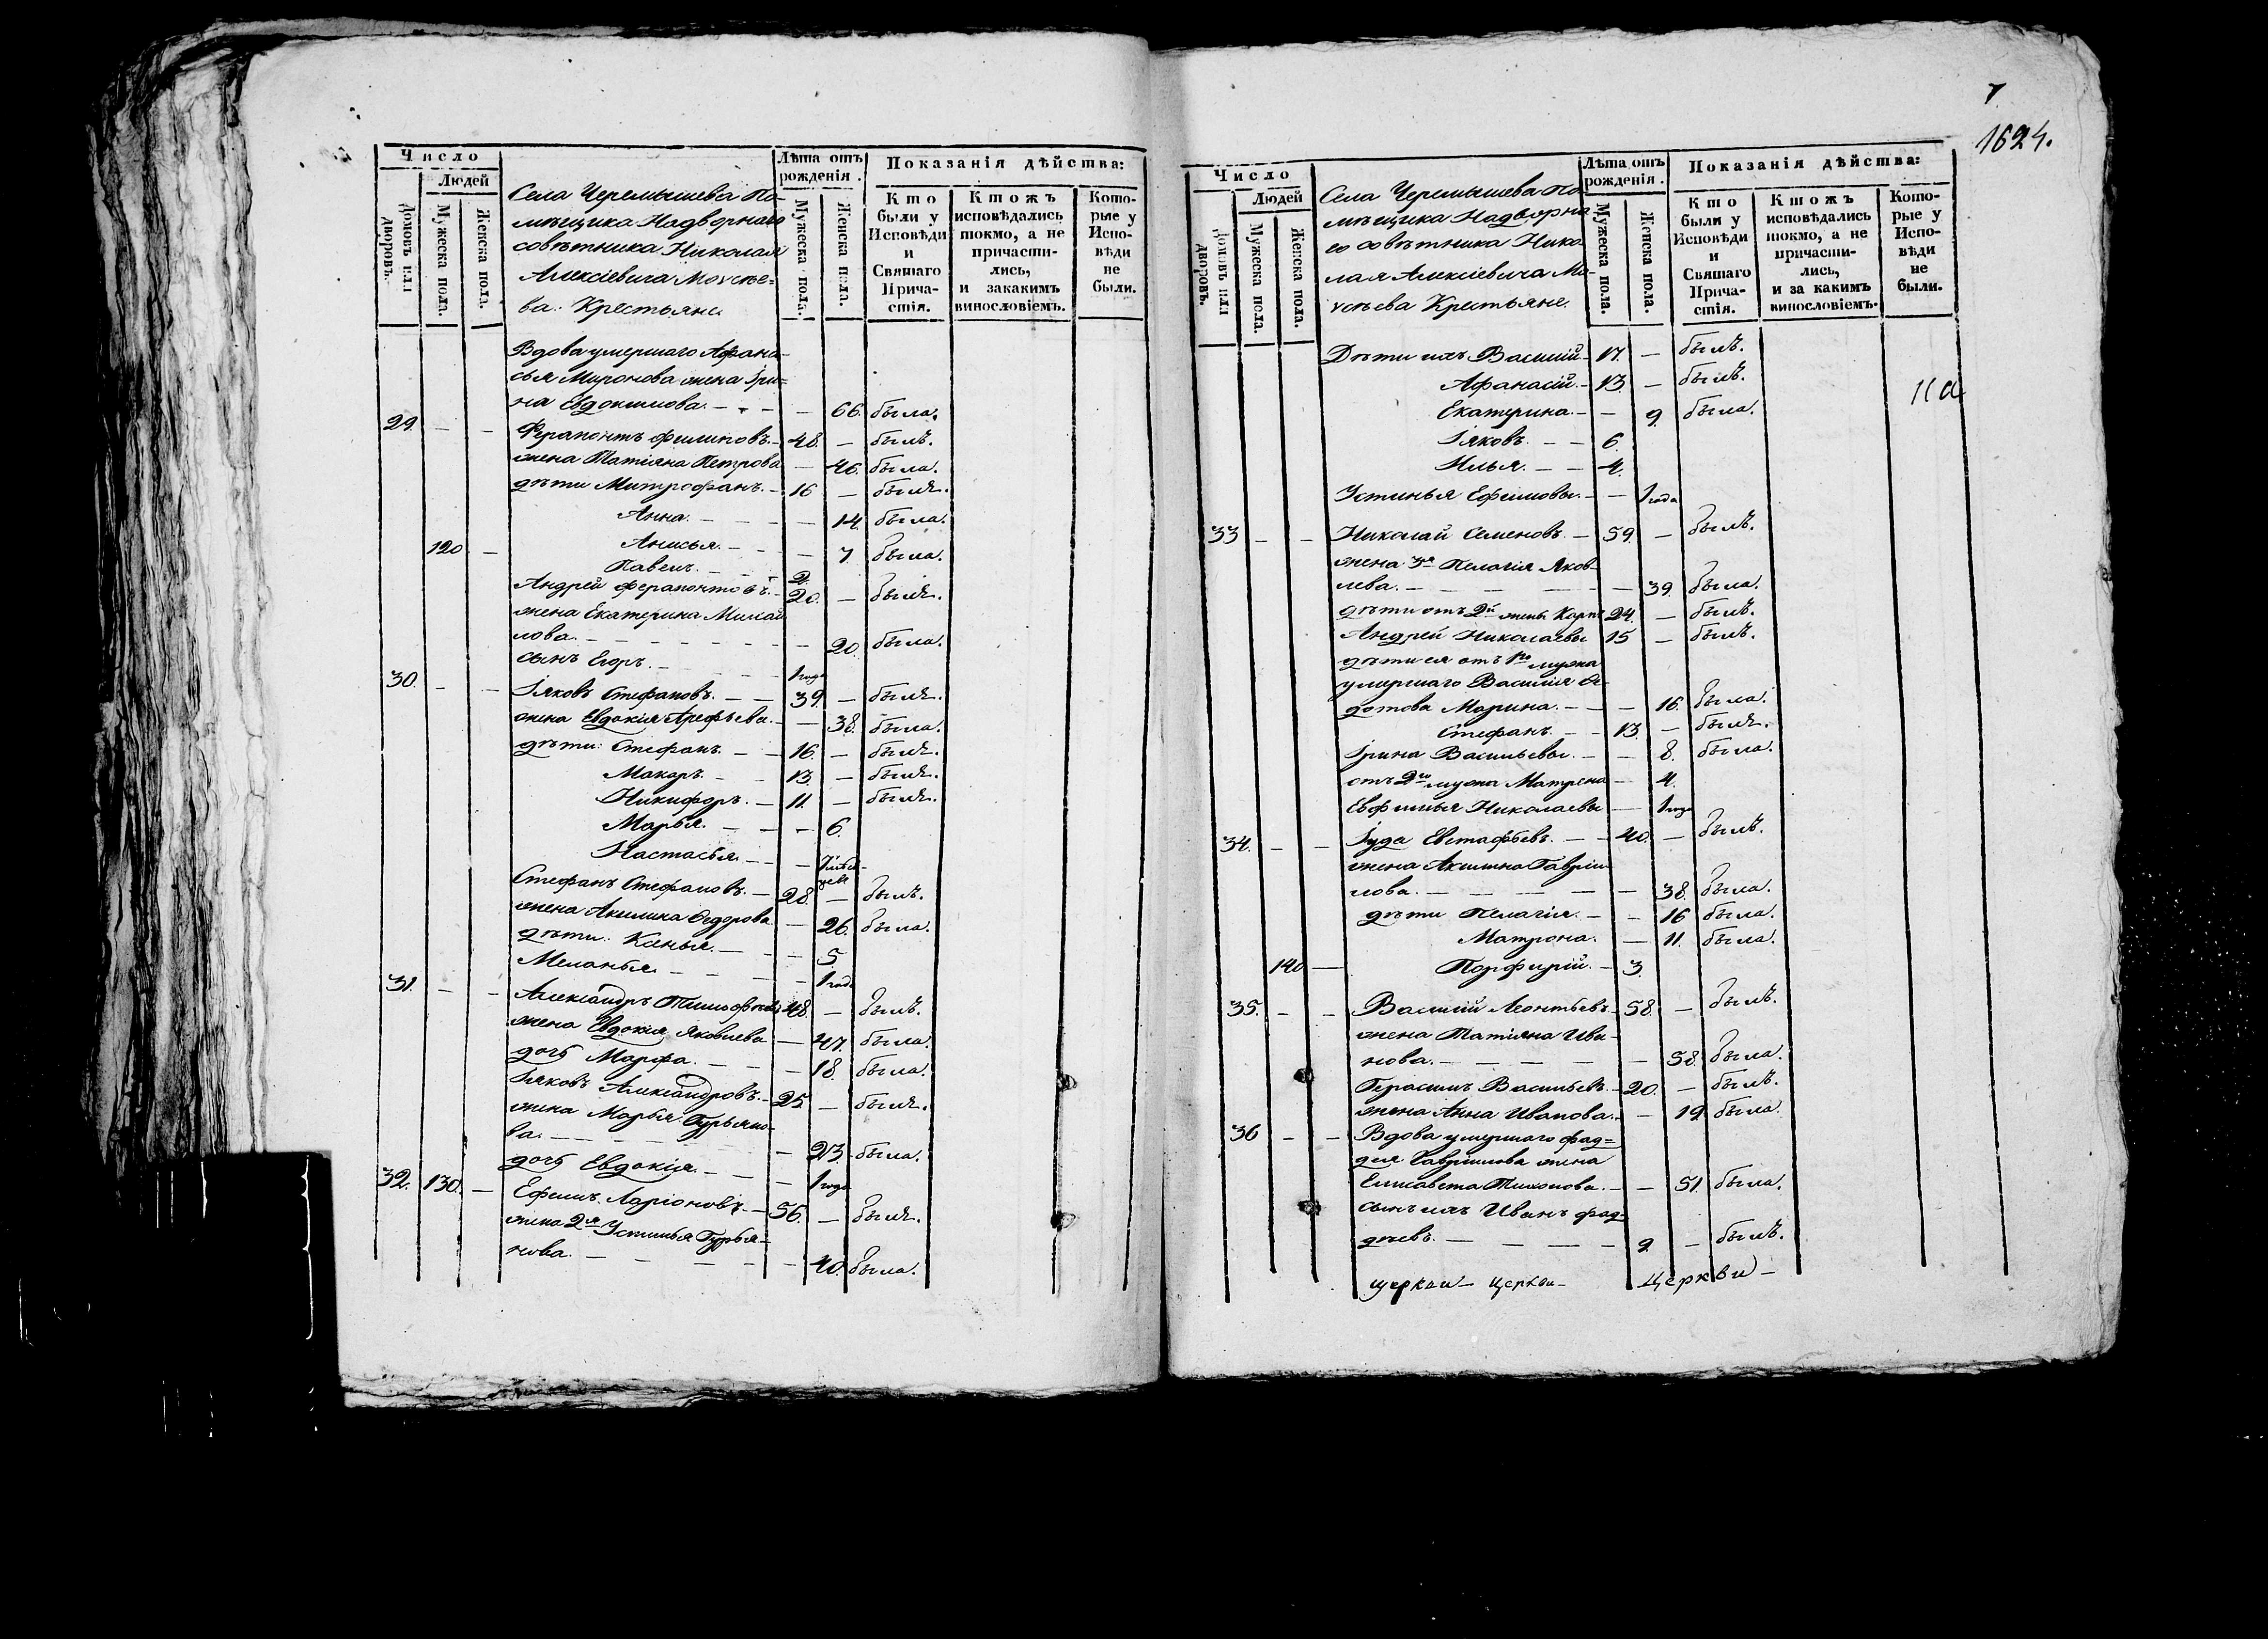 Число
Людей
Домовъ или дворовъ.
Мужеска пола.
Женска пола.
Села Черемышева По-
мѣщика Надворнаго
совѣтника Николая
Алексіевича
ва. Крестьяне
Лѣта отъ рожденія.
Мужеска пола.
Женска пола.
Показанія дѣйства:
Кто были у Исповѣди и Святаго Причастія.
Ктожъ исповѣдались токмо, а не причастились, и закакимъ винословіемъ.
Которые у Исповѣди не были.
Вдова умершаго Афана-
сья Миронова жена Іри-
на Евдокимова. — — — 66. была.
29. — — Ферапонтъ Филиповъ. — 48. — былъ.
жена Татіяна Петрова — 46. была.
дѣти Митрофанъ. — 16 — былъ.
Анна. — — 14. была.
120 — Анисья. — — 7 была.
Павелъ. — — 2.
Андрей Ферапонтовъ. — 20. — былъ.
жена Екатерина Михай
лова. — — — 20. была.
сынъ Егоръ. — — 1 года
30. — — Іяковъ Стефановъ. — — 39. — былъ.
жена Евдокія Арефьева. — — 38. была.
дѣти: Стефанъ. — — 16. — былъ.
Макаръ. — 13. — былъ.
Никифоръ. — 11. — былъ.
Марья. — — — 6.
Настасья. — — —
Стефанъ Стефановъ. — 28. — былъ.
жена Акилина Ѳедорова — 26. была.
дѣти: Ксенья. — — — 5
Меланья. — — — 1 года
31. — — Александръ 48. — былъ.
жена Евдокія Яковлева — 47. была.
дочь Марфа. — — — 18. была.
Іяковъ Александровъ. — 25 — былъ.
жена Марья Гурьяно-
ва. — — — 23. была.
дочь Евдокія. — — — 1 года
32. 130. — Ефимъ Ларіоновъ. — 56. — былъ.
жена 2я Устинья Гурья-
нова. — — — 40. была.
7
1624.
Число
Людей
Домовъ или дворовъ.
Мужеска пола.
Женска пола.
Села Черемышева По-
мѣщика Надворна-
го совѣтника Нико-
лая Алексіевича Мо-
ѵсѣева Крестьяне.
Лѣта отъ рожденія.
Мужеска пола.
Женска пола.
Показанія дѣйства:
Кто были у Исповѣди и Святаго Причастія.
Ктожъ исповѣдались токмо, а не причастились, и за какимъ винословіемъ.
Которые у Исповѣди не были.
Дѣти ихъ Василій — 17. — былъ.
Афанасій. — 13. — былъ.
Екатерина. — — 9. была.
Іяковъ. — — 6.
Илья. — — 4.
Устинья Ефимовы. — — 1 года
33 — — Николай Семеновъ. — 59. — былъ.
жена 3я Пелагія Яков-
лева. — — — 39. была.
дѣти отъ 2й жены Карпъ 24. — былъ.
Андрей Николаевы 15 — былъ.
дѣти ея отъ 1го мужа
умершаго Василія Ѳе-
дотова Марина. — — — 16. была.
Стефанъ. — — 13. — былъ.
Ірина Васильевы. — — 8. была.
отъ 2го мужа Матрена — 4.
Евфимья Николаевы — 1 года
34. — — Іуда Евстафьевъ. — — 40. — былъ.
жена Акилина Гаврии-
лова. — — — 38. была.
дѣти Пелагія. — — 16 была.
Матрона. — 11. была.
140 — Порфирій. — 3.
35. — — Василій Леонтьевъ. — 58. — былъ.
жена Татіяна Ива-
нова. — — — 58. была.
Герасимъ Васильевъ. — 20. — былъ.
жена Анна Иванова. — — 19. была.
36 — — Вдова умершаго Фад-
дея Гавриилова жена
Елисавета Тихонова. — — 51. была.
сынъ ихъ Иванъ Фад-
дѣевъ. — — — 9. — былъ.
церкви — церкви — Церкви —